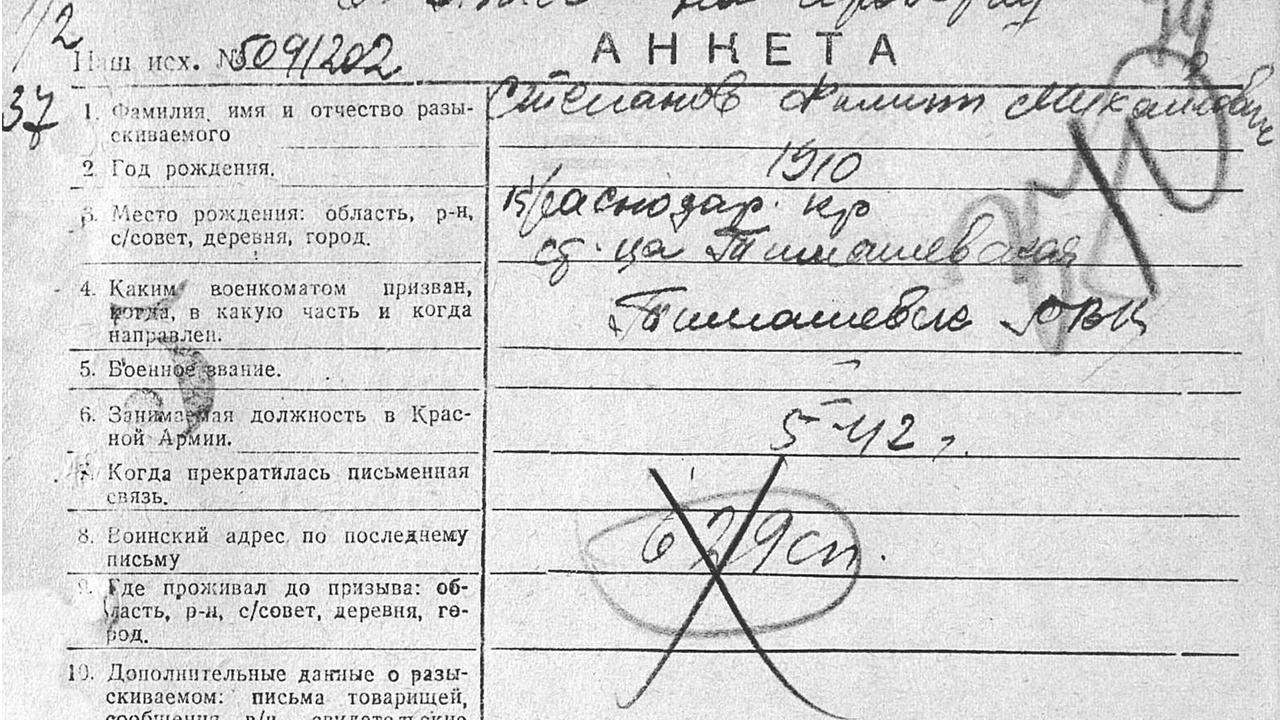 1/2
на проверку
Наш исх. № 509/202
АНКЕТА
37
1. Фамилия, имя и отчество разы-
скиваемого
Степанов Филипп Михайлович
2. Год рождения.
1910
3. Место рождения: область, р-н,
с/совет, деревня, город.
Краснодар. кр
ст-ца Тимашевская
4. Каким военкоматом призван,
когда, в какую часть и когда
направлен.
Тимашевск РВК
5. Военное звание.
–
6. Занимаемая должность в Крас-
ной Армии.
5-42 г.
7. Когда прекратилась письменная
связь.
8. Воинский адрес по последнему
письму
629 сп.
9. Где проживал до призыва: об-
ласть, р-н, с/совет, деревня, го-
род.
10. Дополнительные данные о разы-
скиваемом: письма товарищей,
сообщения в/ч, свидетельские